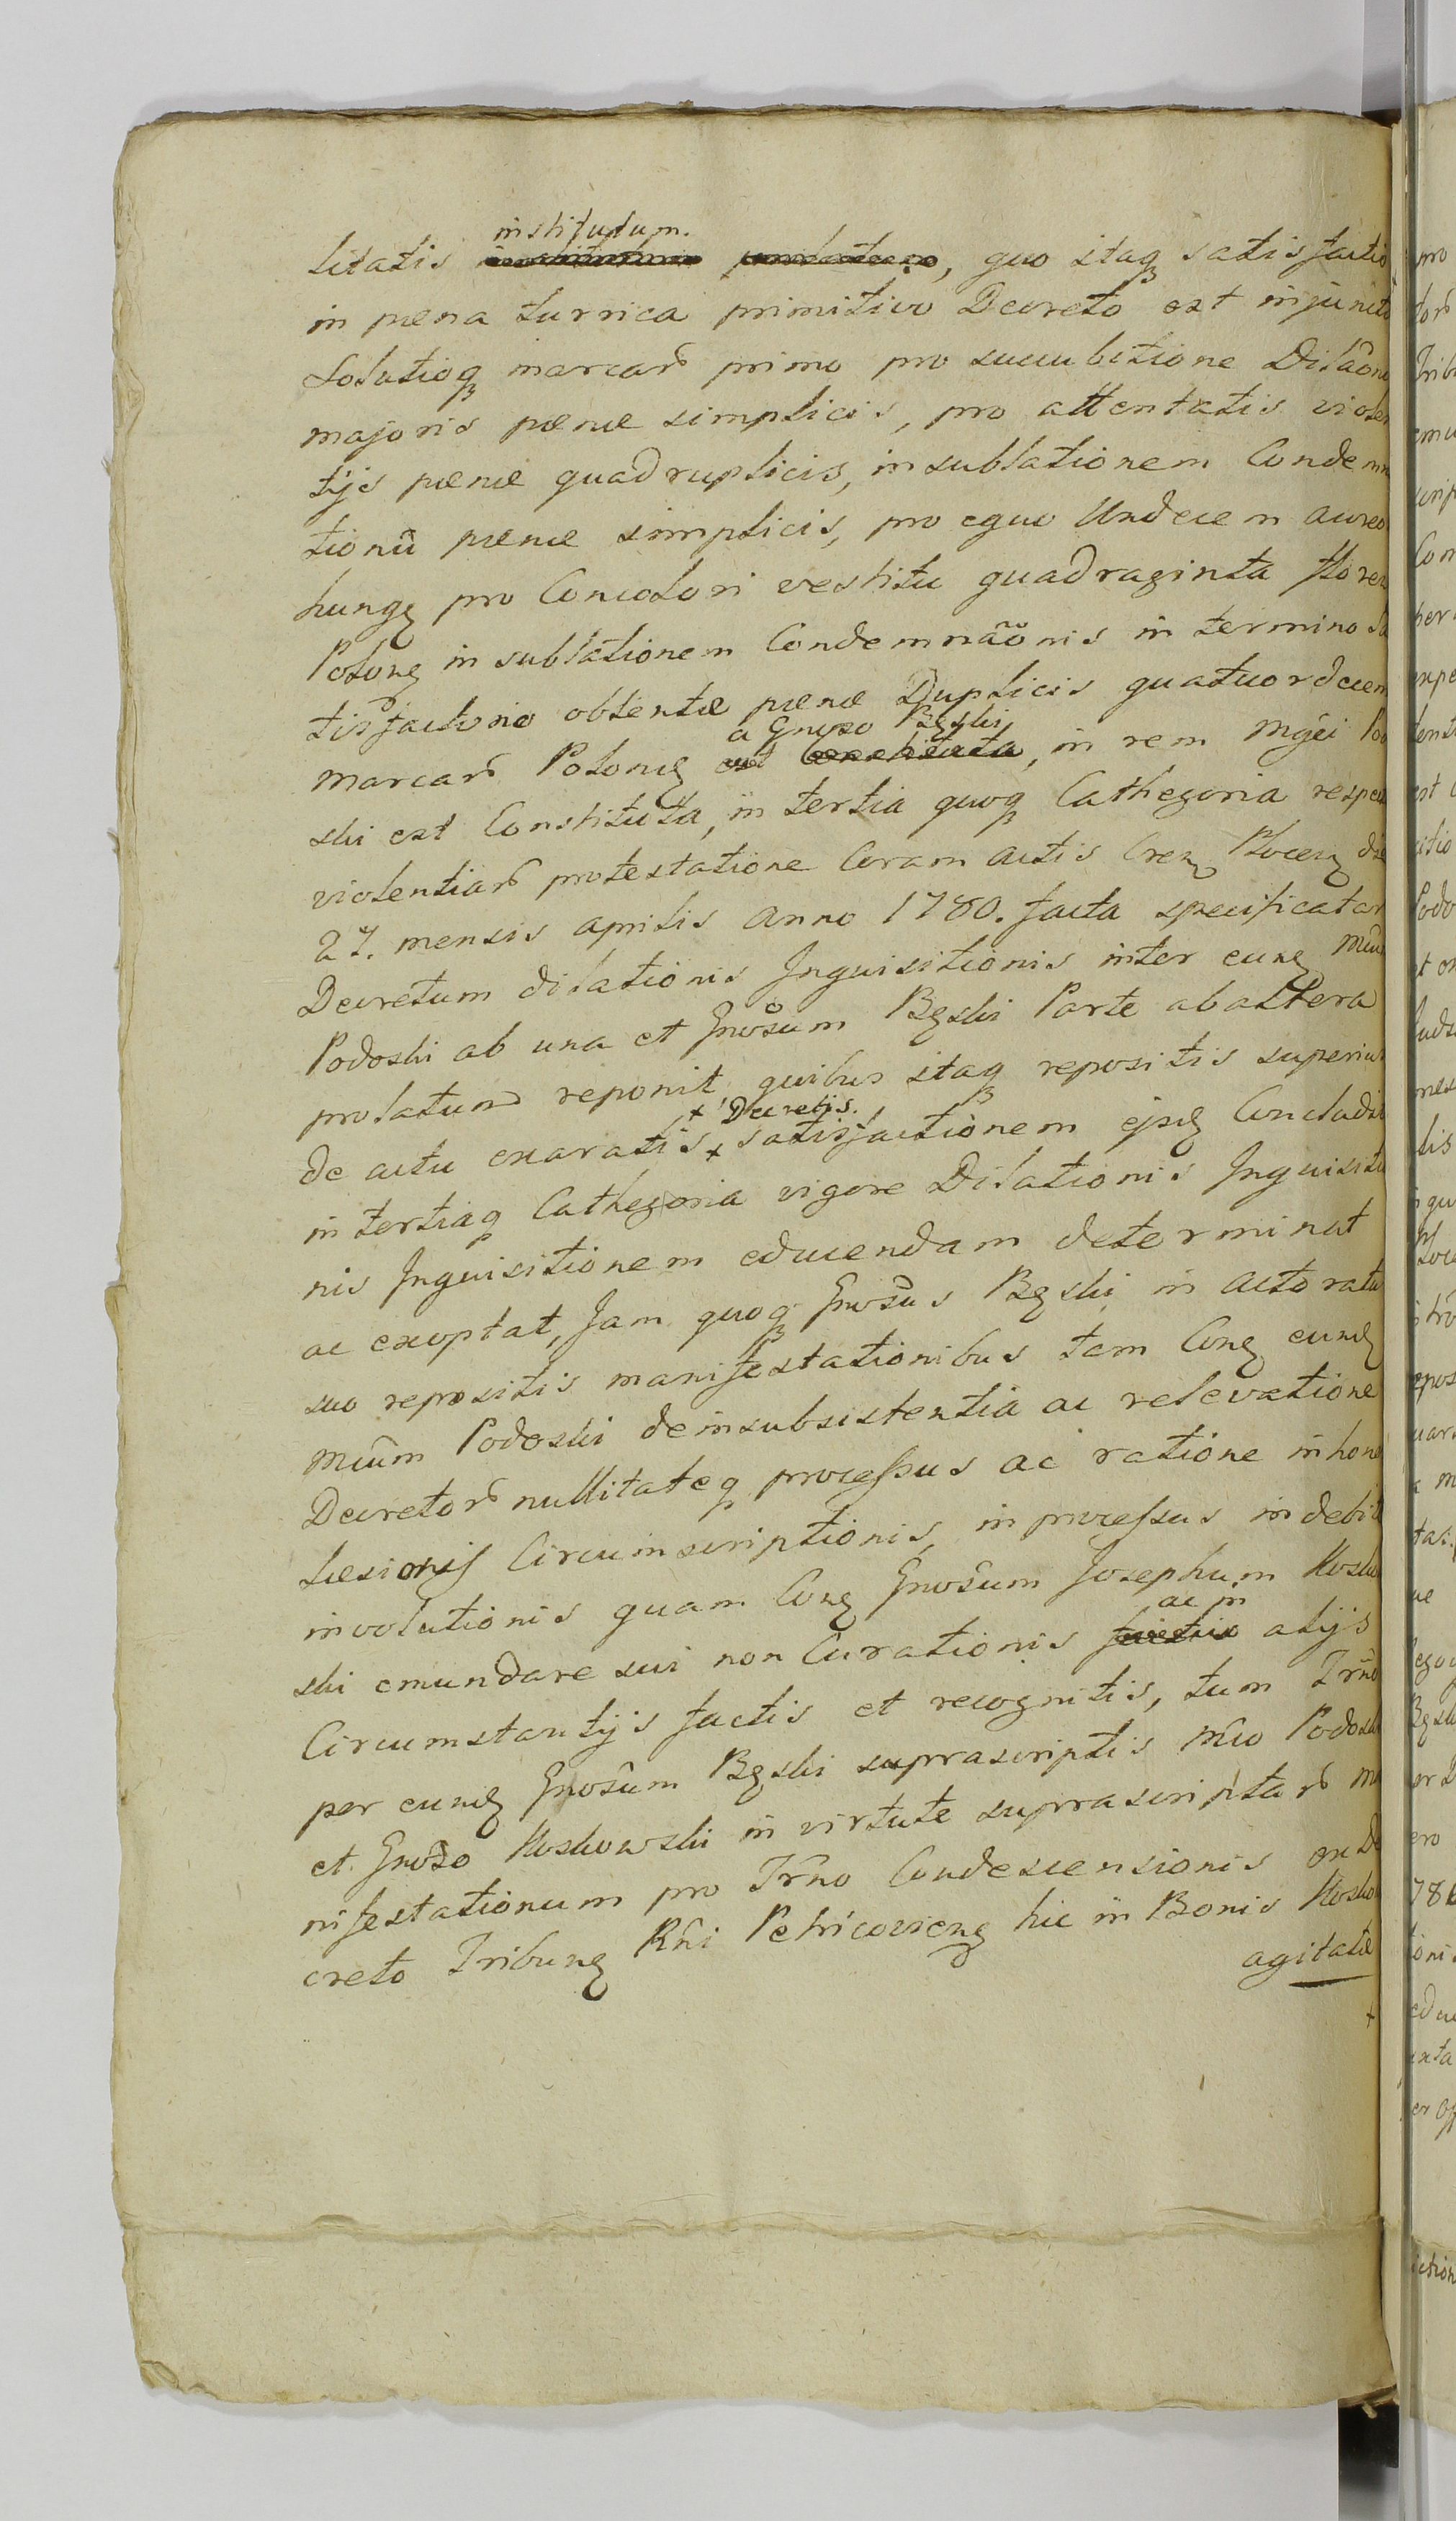 institutum.
litatis, quo itaq satisfactio
in pœna turrica primitivo Decreto est injuncta
Solutioq marcar primo pro succubitione Dilaõne
majoris pœnæ simplicis, pro attentatis violen
tijs pœnæ quadruplicis, in sublationem Condemna
tionũ pœnæ simplicis, pro equo Undecem aureo
hung pro Concolori vestitu quadraginta floren
Polon in sublationem Condemnaõnis in termino sa
tisfactorio obtentæ pœnæ Duplicis quatuordecem
a Gnoso Bęski
marcar Polonic, in rem Mgci Podo
ski est Constituta, in tertia quoq Cathegoria respectu
violentiar protestatione Coram actis Cren Plocen die
27. mensis aprilis Anno 1780. facta specificatar
Decretum dilationis Inquisitionis inter eund Mcum
Podoski ab una et Gnosum Bęski Parte ab altera
prolatum reponit, quibus itaq repositis superius
+ Decretis.
de actu exaratis + satisfactionem ejsd Concludit
in tertiaq Cathegoria vigore Dilationis Inquisitio
nis Inquisitionem educendam determinat
ac exoptat, Jam quoq Gnosus Bęski in actoratu
suo repositis manifestationibus tam Con eund
Mcum Podoski de insubsistentia ac relevatione
Decretor nullitateq processus ac ratione in hono
læsionis Circumscriptionis, in processus indebiti
involutionis quam Con Gnosum Josephum Kosko
ac in
ski emundare sui non Curationis alijs
Circumstantijs factis et recognitis, tum Trno
per eund Gnosum Bęski suprascriptis Mco Podoski
et Gnoso Koskowski in virtute suprascriptar ma
nifestationum pro Trno Condescensionis ex De
creto Tribun Rni Petricovien hic in Bonis Kosko
agitatæ
+